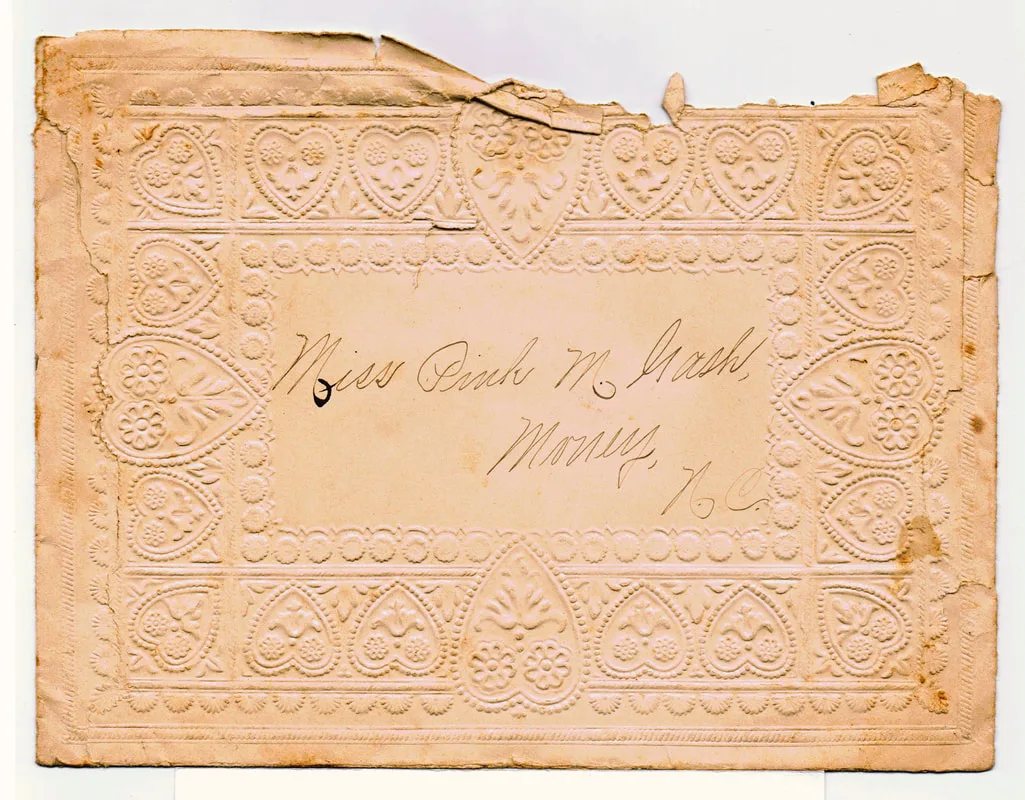 Miss Pink M. Gash,
Money,
N. C.